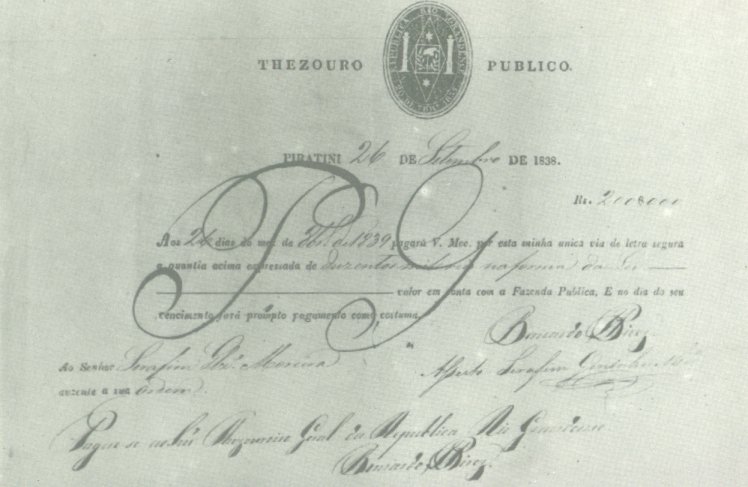 REPUBLICA RIO GRANDENSE
THEZOURO PUBLICO.
PIRATINI 26 DE Setembro DE 1838.
Rs. 200$000
Aos 26 dias do mez de de 1839 pagará V. Mce. por esta minha unica via de letra segura
a quantia acima expressada de duzentos mil reis na forma da Lei
valor em conta com a Fazenda Publica, E no dia do seu
vencimento fará prompto pagamento como costuma.
Bernardo Pires
Ao Senhor Serafim Moreira
auzente a sua ordem.
Serafim
Pague-se ao Thezoureiro Geral da Republica Rio Grandense
Bernardo Pires